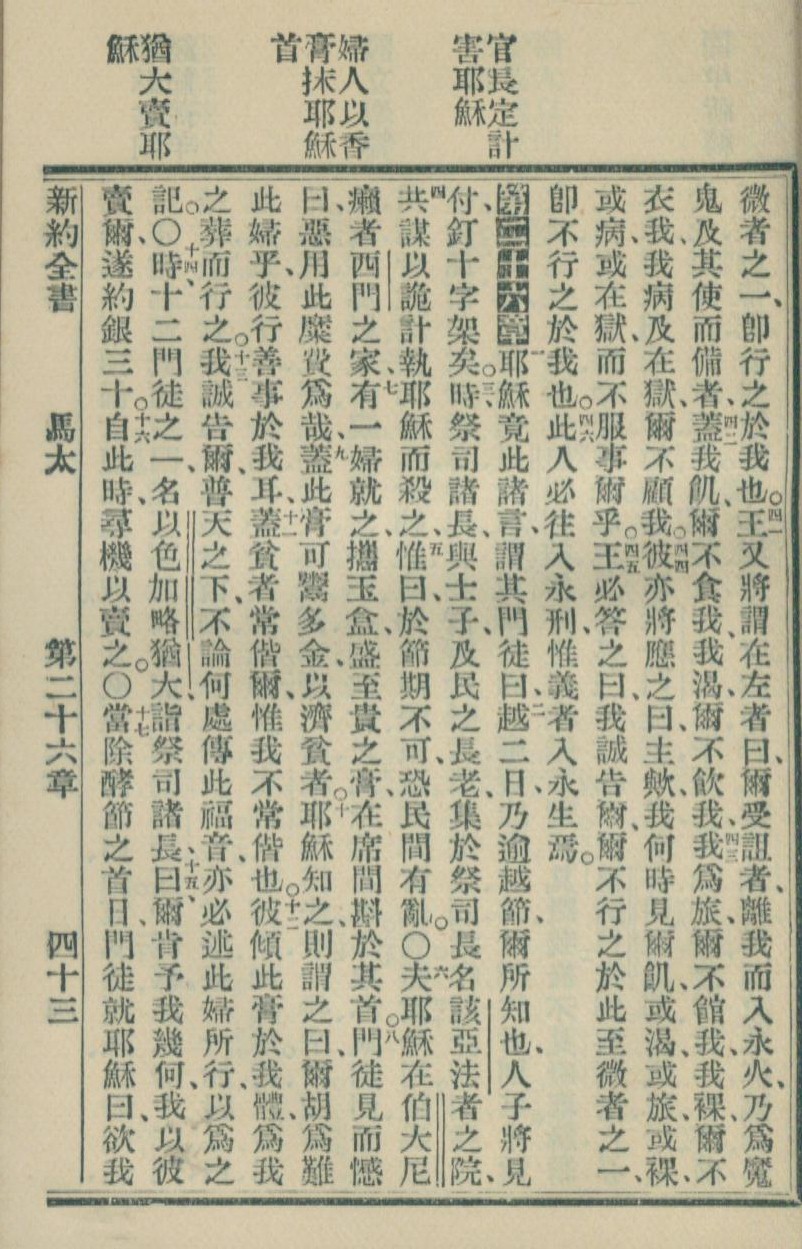 官長定計
害耶穌
婦人以香
膏抹耶穌
首
猶大賣耶
穌
微者之一、卽行之於我也。四一王又將謂在左者曰、爾受詛者、離我而入永火、乃爲魔
鬼及其使而備者、四二蓋我飢、爾不食我、我渴、爾不飲我、四三我爲旅、爾不館我、我裸、爾不
衣我、我病及在獄、爾不顧我。四四彼亦將應之曰、主歟、我何時見爾飢、或渴、或旅、或裸、
或病、或在獄、而不服事爾乎。四五王必答之曰、我誠告爾、爾不行之於此至微者之一、
卽不行之於我也。四六此人必往入永刑、惟義者入永生焉。
第二十六章一耶穌竟此諸言、謂其門徒曰、二越二日、乃逾越節、爾所知也、人子將見
付釘十字架矣。三時、祭司諸長、與士子、及民之長老、集於祭司長名該亞法者之院、
四共謀以詭計執耶穌而殺之、五惟曰、於節期不可、恐民間有亂。〇六夫耶穌在伯大尼
癩者西門之家、七有一婦就之、攜玉盒、盛至貴之膏、在席間斟於其首。八門徒見而憾
曰、惡用此糜費爲哉、九蓋此膏可鬻多金、以濟貧者。十耶穌知之、則謂之曰、爾胡爲難
此婦乎、彼行善事於我耳、十一蓋貧者常偕爾、惟我不常偕也。十二彼傾此膏於我體、爲我
之葬而行之。十三我誠告爾、普天之下、不論何處傳此福音、亦必述此婦所行、以爲之
記。〇十四時、十二門徒之一、名以色加略猶大、詣祭司諸長、十五曰、爾肯予我幾何、我以彼
賣爾、遂約銀三十。十六自此時、尋機以賣之。〇十七當除酵節之首日、門徒就耶穌曰、欲我
新約全書 馬太 第二十六章 四十三